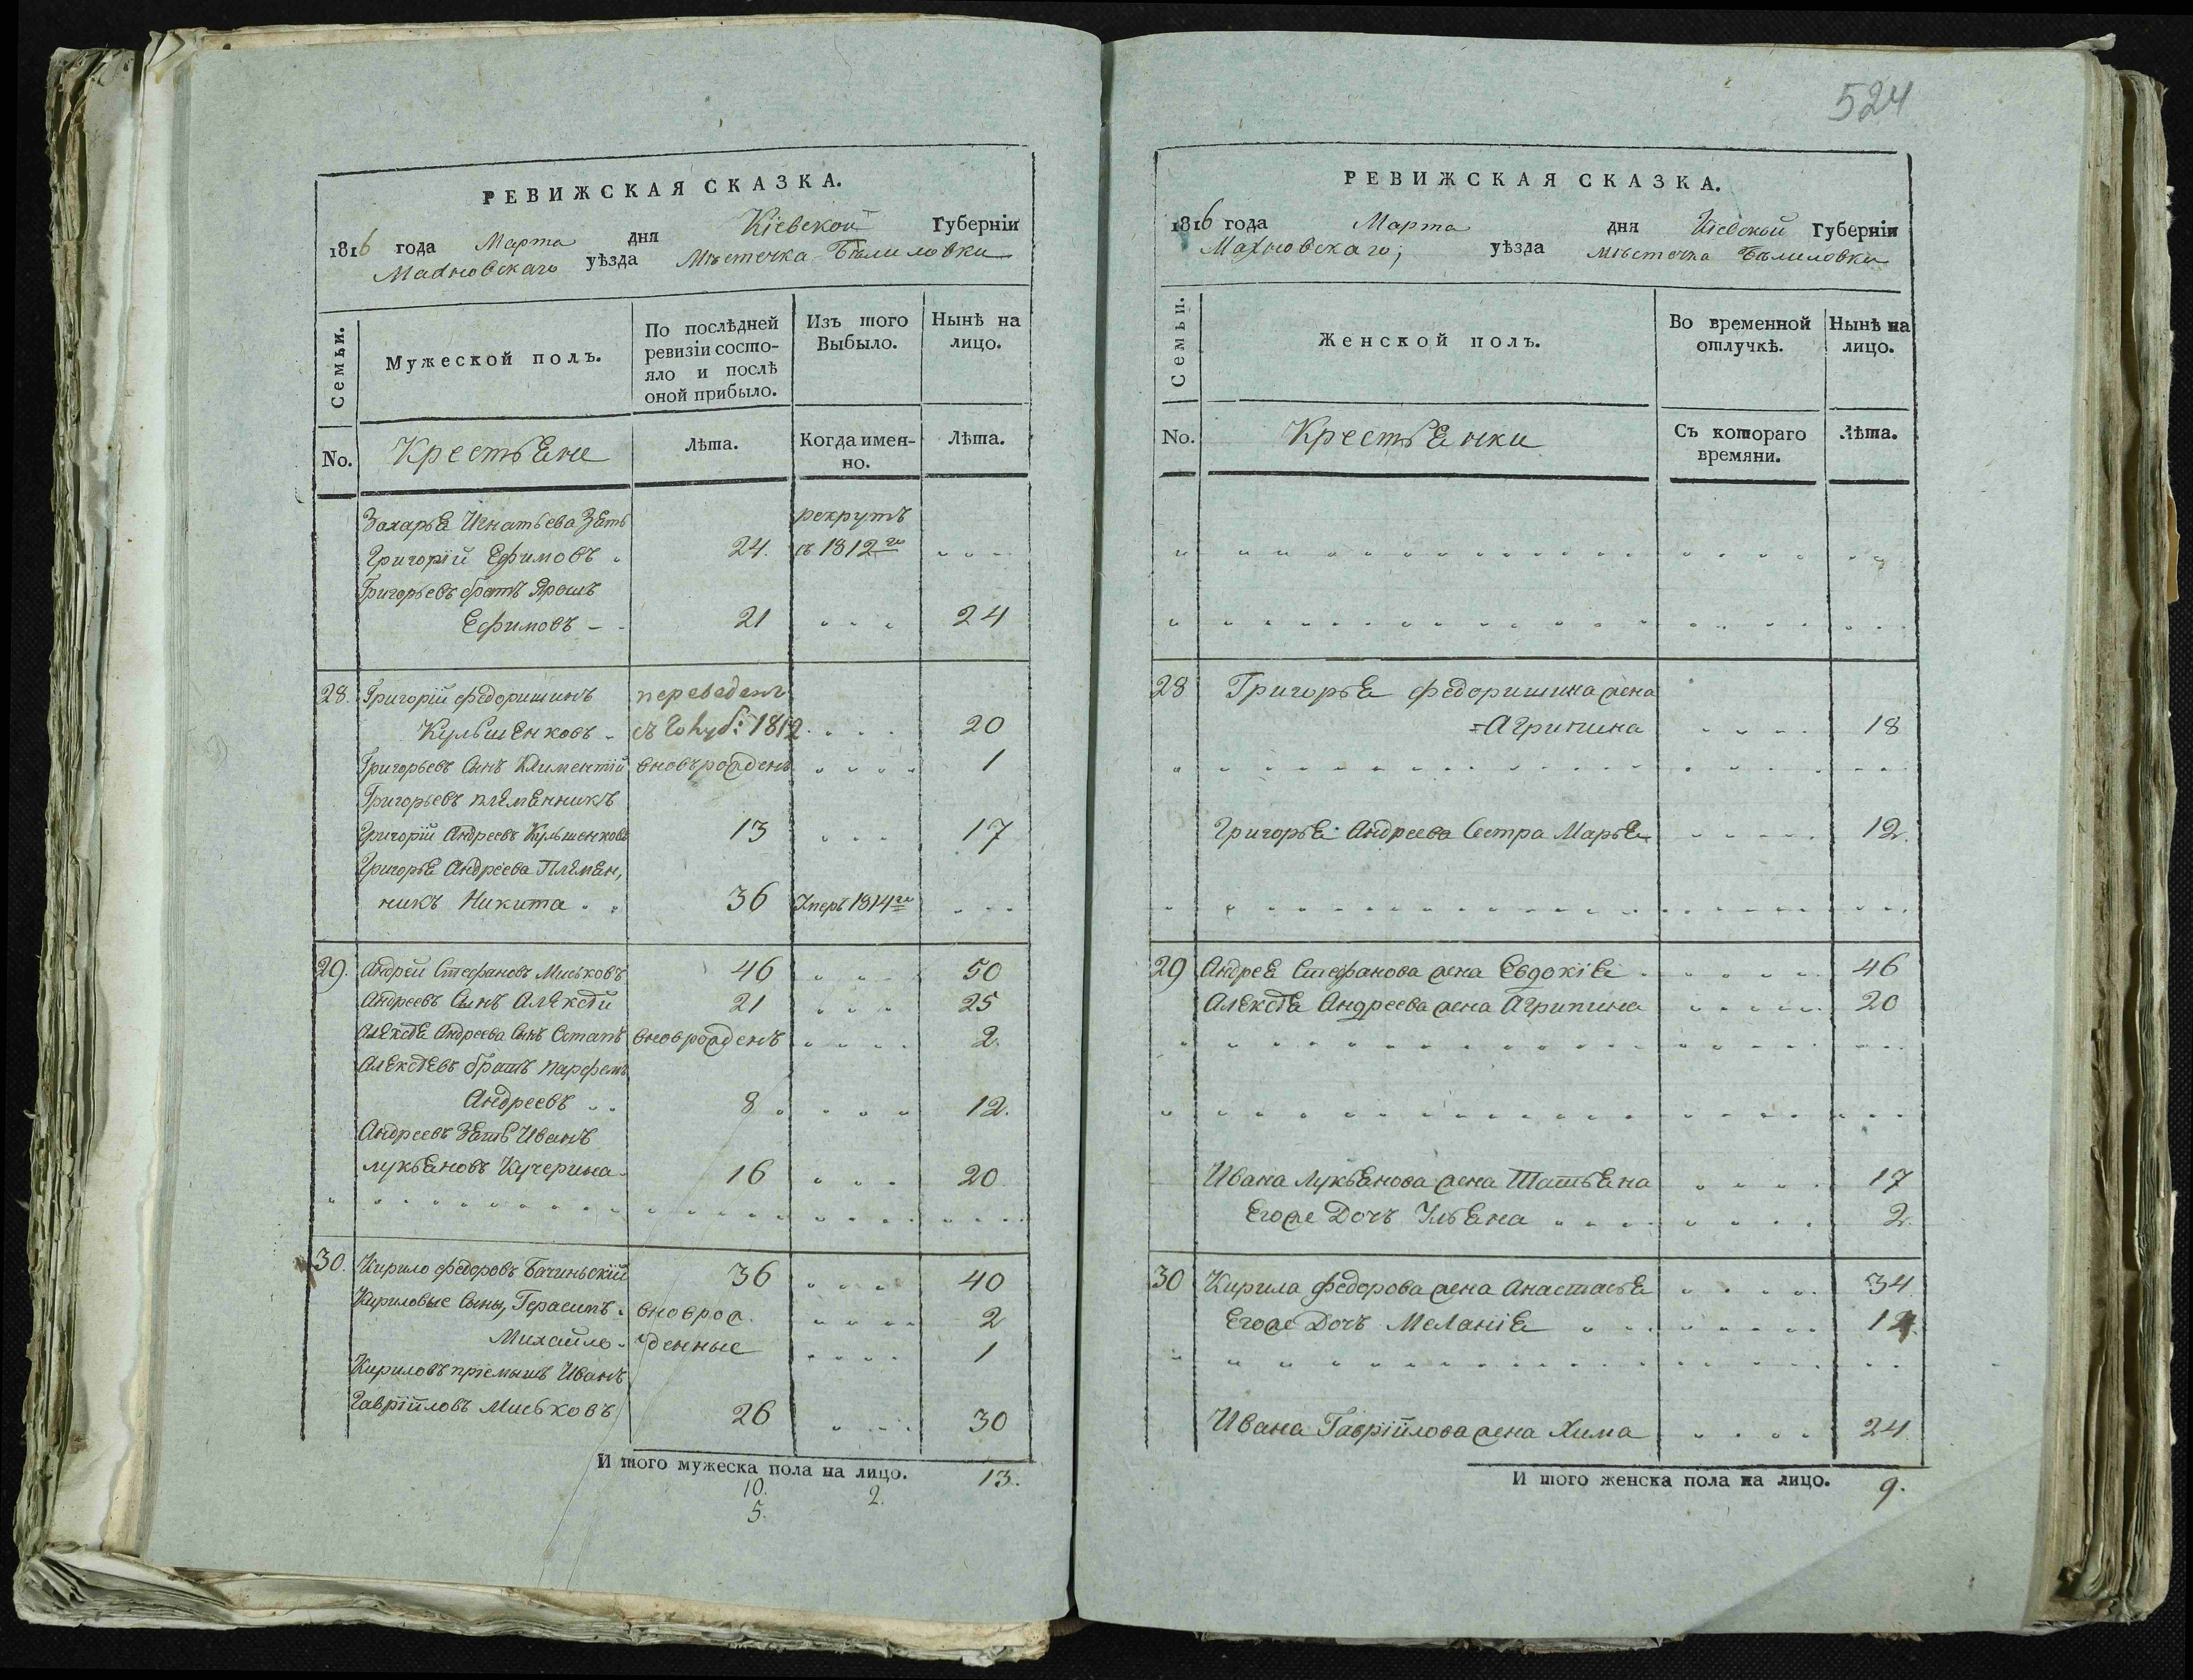 РЕВИЖСКАЯ СКАЗКА.
1816 года Марта дня Кіевской Губерніи
Махновскаго уѣзда Мѣстечка Бѣлиловки
Семьи.
Мужеской полъ.
По послѣдней ревизіи состояло и послѣ оной прибыло.
Изъ того Выбыло.
Нынѣ на лицо.
No.
Крестьяне
Лѣта.
Когда именно.
Лѣта.
Захарья Игнатьева Зять рекрутъ
Григорій Ефимовъ 24. въ 1812го
Григорьевъ братъ Ярошъ
Ефимовъ 21 24
28. Григорій Федоришинъ переведенъ
Кульшенковъ съ 1812. 20
Григорьевъ Сынъ Климентій вновърожденъ 1
Григорьевъ племянникъ
Григорій Андреевъ Кульшенковъ 13 17
Григорья Андреева Племян,
никъ Никита 36 Умеръ 1814го
29. Андрей Стефановъ Миськовъ 46 50
Андреевъ Сынъ Алексѣй 21 25
Алексѣя Андреева Сынъ Остапъ вноврожденъ 2.
Алексѣевъ братъ Парфенъ
Андреевъ 8 12.
Андреевъ Зять Иванъ
Лукьяновъ Кучерина 16 20
30. Кирило Федоровъ Бачиньскій 36 40
Кириловые Сыны, Герасимъ вноврож 2
Михайло денные 1
Кириловъ пріемышъ Иванъ
Гавріиловъ Миськовъ 26 30
И того мужеска пола на лицо. 13.
10. 2.
5.
524
РЕВИЖСКАЯ СКАЗКА.
1816 года Марта дня Кіевской Губерніи
Махновскаго, уѣзда мѣстечка Бѣлиловки
Семьи.
Женской полъ.
Во временной отлучкѣ.
Нынѣ на лицо.
No.
Крестьянки
Съ котораго времяни.
Лѣта.
28 Григорья Федоришина жена
=Агрипина 18
Григорья Андреева Сестра Марья 12.
29 Андрея Стефанова жена Евдокія 46
Алексѣя Андреева жена Агрипина 20
Ивана Лукьянова жена Татьяна 17
Егоже Дочъ Ульяна 2.
30 Кирила Федорова жена Анастасья 34
Егоже Дочъ Меланія
Ивана Гавріилова жена Хима 24
И того женска пола на лицо. 9.